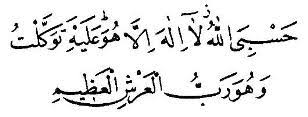 حَسْبِيَ اللهُ لَا إِلٰهَ إِلَّا هُوَ عَلَيْهِ تَوَكَّلْتُ
وَهُوَ رَبُّ الْعَرْشِ الْعَظِيمِ